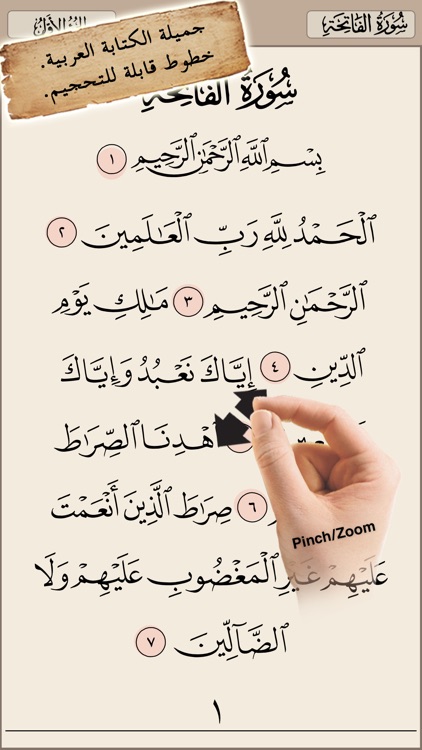 سُورَةُ الفَاتِحَةِ
جميلة الكتابة العربية.
خطوط قابلة للتحجيم.
سُورَةُ الفَاتِحَةِ
بِسْمِ ٱللَّهِ ٱلرَّحْمَٰنِ ٱلرَّحِيمِ ١
ٱلْحَمْدُ لِلَّهِ رَبِّ ٱلْعَٰلَمِينَ ٢
ٱلرَّحْمَٰنِ ٱلرَّحِيمِ ٣ مَٰلِكِ يَوْمِ
ٱلدِّينِ ٤ إِيَّاكَ نَعْبُدُ وَإِيَّاكَ
ٱهْدِنَا ٱلصِّرَٰطَ
٦ صِرَٰطَ ٱلَّذِينَ أَنْعَمْتَ
عَلَيْهِمْ غَيْرِ ٱلْمَغْضُوبِ عَلَيْهِمْ وَلَا
ٱلضَّآلِّينَ ٧
Pinch/Zoom
١